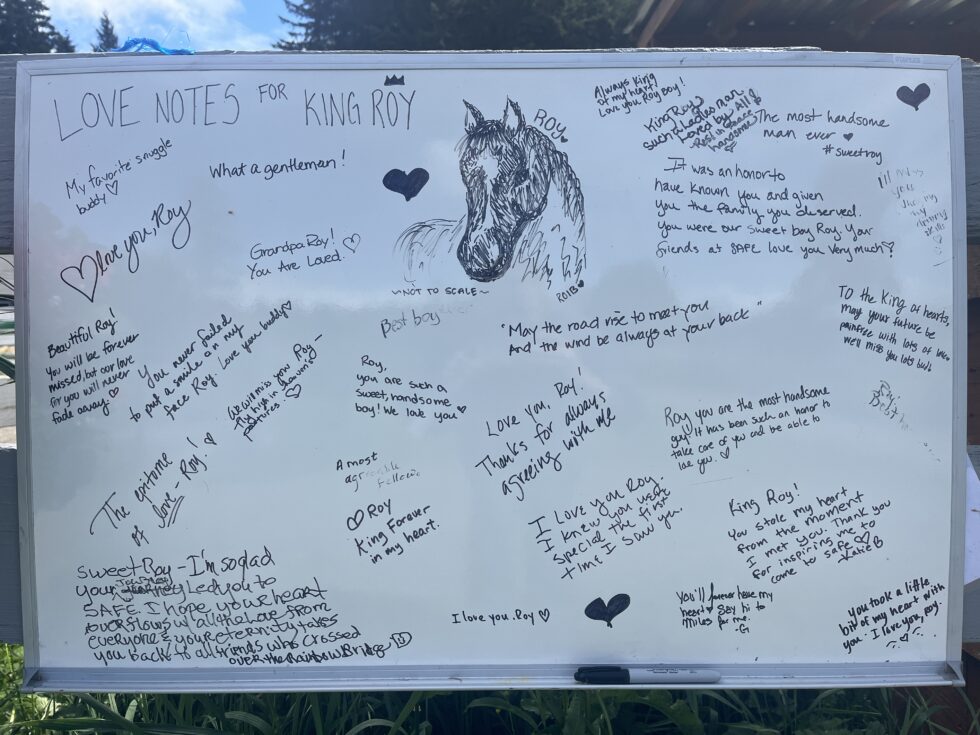 LOVE NOTES FOR KING ROY
My favorite snuggle
buddy
What a gentleman!
love you, Roy
Grandpa Roy!
You Are Loved.
ROY
~NOT TO SCALE~
ROIB
Always King
of my heart!
Love you, Roy Boy!
King Roy
such a ladies man
Loved by All
Rest in Peace
handsome
The most handsome
man ever
#sweetroy
It was an honor to
have known you and given
you the family you deserved.
You were our sweet boy Roy. Your
friends at SAFE love you very much
I'll miss
you
my
Best boy
"May the road rise to meet you
And the wind be always at your back"
TO the King of hearts,
may your future be
painfree with lots of love
we'll miss you lots bud.
Beautiful Roy!
You will be forever
missed, but our love
for you will never
fade away
You never failed
to put a smile on my
face Roy. Love you buddy
We will miss you Roy -
fly high in heaven's
pastures
Roy,
you are such a
sweet, handsome
boy! We love you
Love you, Roy!
Thanks for always
agreeing with me
Roy you are the most handsome
guy! It has been such an honor to
take care of you and be able to
love you.
The epitome
of love - Roy!
A most
agreeable
fellow
Roy
King Forever
in my heart.
I love you Roy.
I knew you were
special the first
time I saw you.
King Roy!
You stole my heart
from the moment
I met you. Thank you
for inspiring me to
come to safe
- Katie B
Sweet Roy - I'm so glad
your journey led you to
SAFE. I hope your heart
overflows w/ all the love from
everyone & your eternity takes
you back to all friends who crossed
over the Rainbow Bridge
I love you, Roy
You'll forever have my
heart Say hi to
Miles for me.
-G
you took a little
bit of my heart with
you. I love you, Roy.